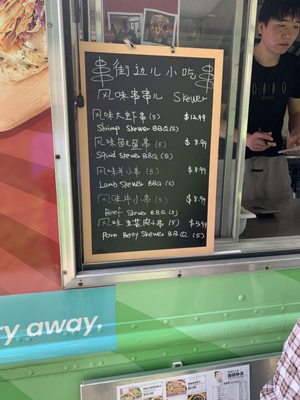 串街边儿小吃串
风味串串儿 Skewer
风味大虾串(5) $12.99
Shrimp Skewer BBQ (5)
风味鱿鱼串(5) $8.99
Squid Skewer BBQ (5)
风味羊小串(5) $8.99
Lamb Skewer BBQ (5)
风味牛小串(5) $8.99
Beef Skewer BBQ (5)
风味五花肉小串(5) $5.99
Pork Belly Skewer BBQ (5)
ry away.